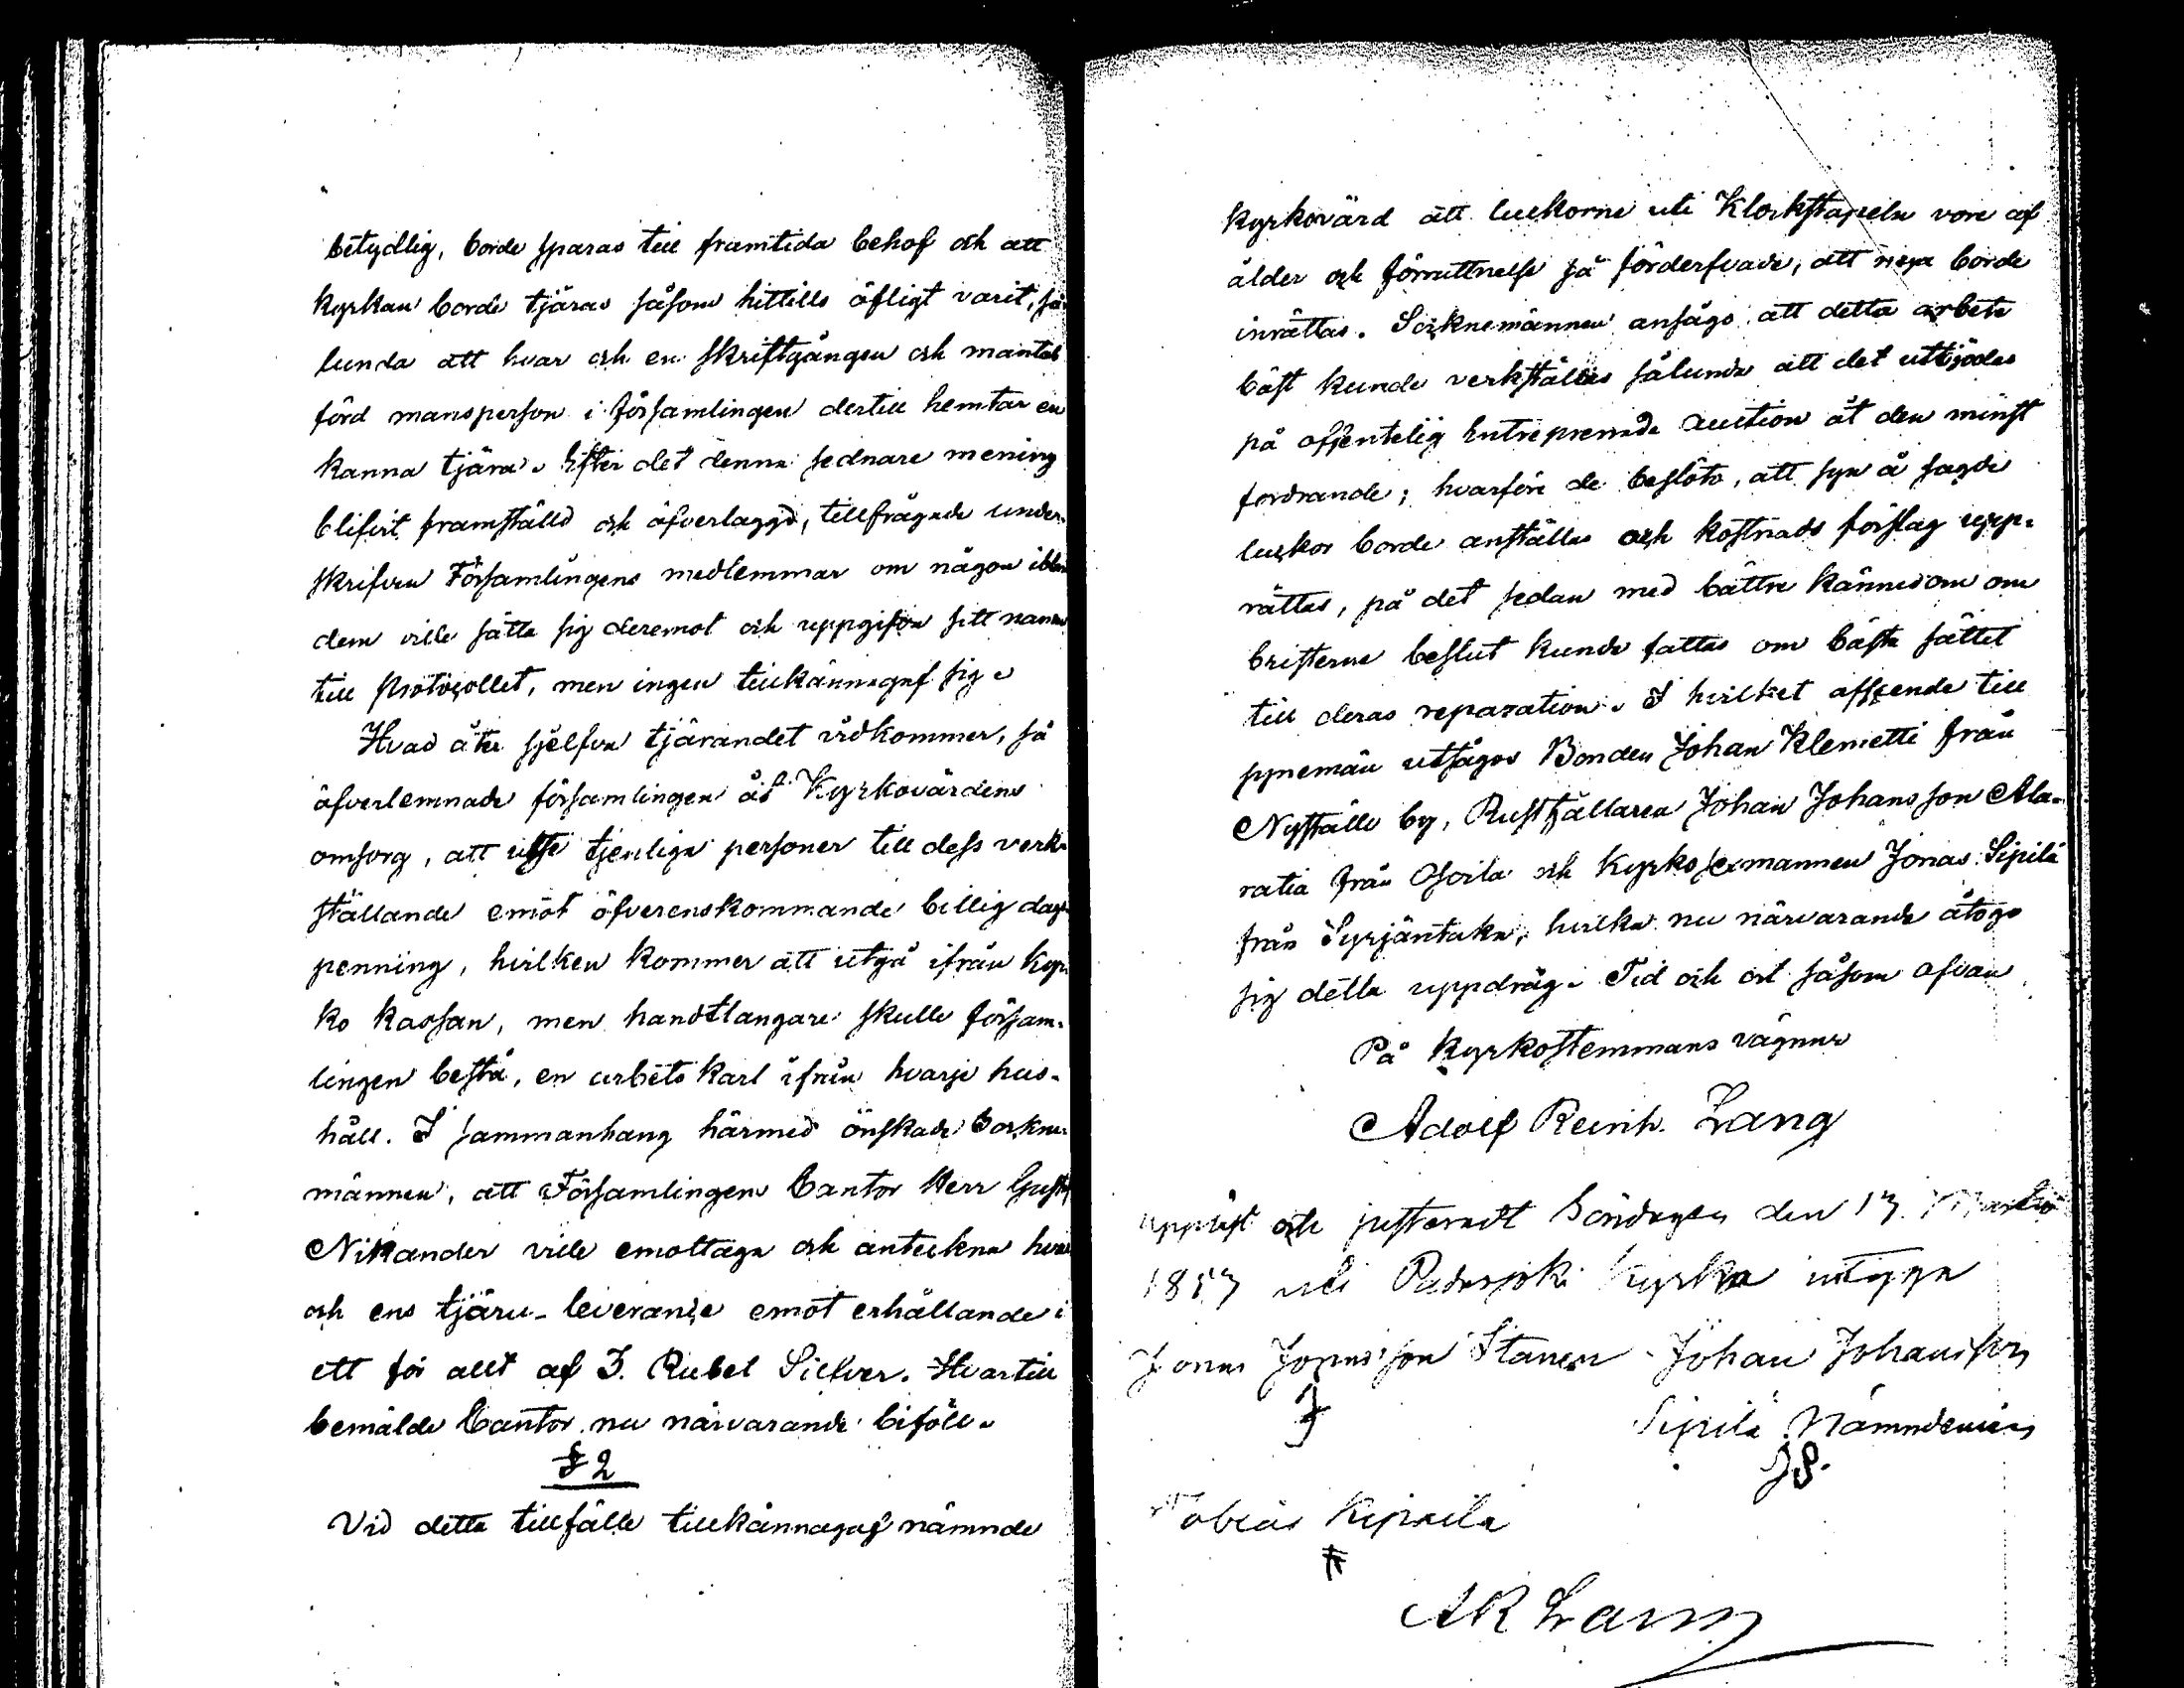 betydlig, borde sparas till framtida behof och att
kyrkan borde tjäras såsom hittills öfligt varit, så
lunda att hvar och en skriftgången och mantals
förd mansperson i församlingen dertill hemtar en
kanna tjära. Efter det denna sednare mening
blifvit framställd och öfverlaggd, tillfrågade under-
skrifven Församlingens medlemmar om någon ibland
dem ville sätta sig deremot och uppgifva sitt namn
till Protocollet, men ingen tillkännagaf sig.
Hvad åter sjelfva tjärandet vidkommer, så
öfverlemnade församlingen åt Kyrkovärdens
omsorg, att utse tjenliga personer till dess verk-
ställande emot öfverenskommande billig dags
penning, hvilken kommer att utgå ifrån kyr-
ko kassan, men handtlangare skulle försam-
lingen bestå, en arbets karl ifrån hvarje hus-
håll. I sammanhang härmed önskade Sockne-
männen, att Församlingens Cantor Herr Gustaf
Nikander ville emottaga och anteckna hvars
och ens tjäru-leverance emot erhållande i
ett för allt af 3. Rubel Silfver. Hvartill
bemälde Cantor nu närvarande biföll.
§ 2
Vid detta tillfälle tillkännagaf nämnde
kyrkovärd att luckorne uti Klockstapeln vore af
ålder och förruttnelse så förderfvade, att nya borde
inrättas. Socknemännen ansågo att detta arbete
bäst kunde verkställas sålunda att det utbjödes
på offentelig Entreprenade auction åt den minst
fordrande; hvarföre de beslöto, att syn å sagde
luckor borde anställas och kostnads förslag upp-
rättas, på det sedan med bättre kännedom om
bristerne beslut kunde fattas om bästa sättet
till deras reparation. I hvilket afseende till
synemän utsågos Bonden Johan Klemetti från
Nyställe by, Rusthållaren Johan Johansson Ala-
ratia från Osoila och Kyrko sexmannen Jonas Sipilä
från Syrjäntaka, hvilka nu närvarande åtogo
sig detta uppdrag. Tid och ort såsom ofvan
På Kyrkostemmans vägnar
Adolf Reinh. Lang
Uppläst och justeradt Söndagen den 17 Martii
1857 uti Padasjoki Kyrka intyga
Jonas Jonasson Stanen Johan Johansson
Sipilä Nämndeman
JS.
Tobias
AR Lang